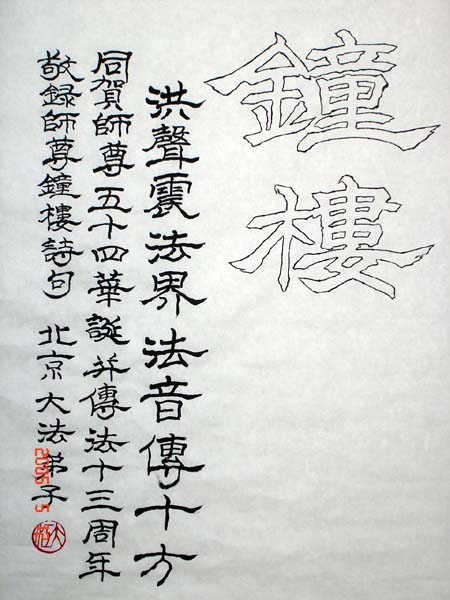 鐘樓
洪聲震法界法音傳十方
同賀師尊五十四華誕并傳法十三周年
敬錄師尊鐘樓詩句 北京大法弟子